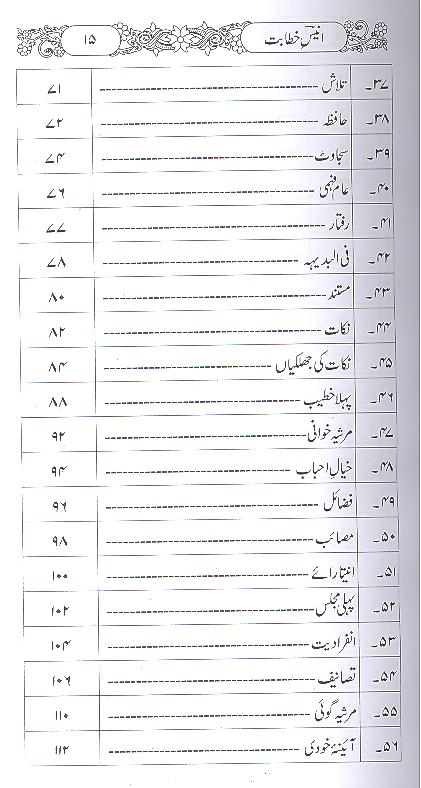 انیسِ خطابت ۱۵
۳۷۔ تلاش ۷۱
۳۸۔ حافظہ ۷۲
۳۹۔ سجاوٹ ۷۴
۴۰۔ عام فہمی ۷۶
۴۱۔ رفتار ۷۷
۴۲۔ فی البدیہہ ۷۸
۴۳۔ مستند ۸۰
۴۴۔ نکات ۸۲
۴۵۔ نکات کی جھلکیاں ۸۴
۴۶۔ پہلا خطیب ۸۸
۴۷۔ مرثیہ خوانی ۹۲
۴۸۔ خیالِ احباب ۹۴
۴۹۔ فضائل ۹۶
۵۰۔ مصائب ۹۸
۵۱۔ ۱۰۰
۵۲۔ پہلی مجلس ۱۰۲
۵۳۔ انفرادیت ۱۰۴
۵۴۔ تصانیف ۱۰۶
۵۵۔ مرثیہ گوئی ۱۱۰
۵۶۔ آئینۂ خودی ۱۱۲